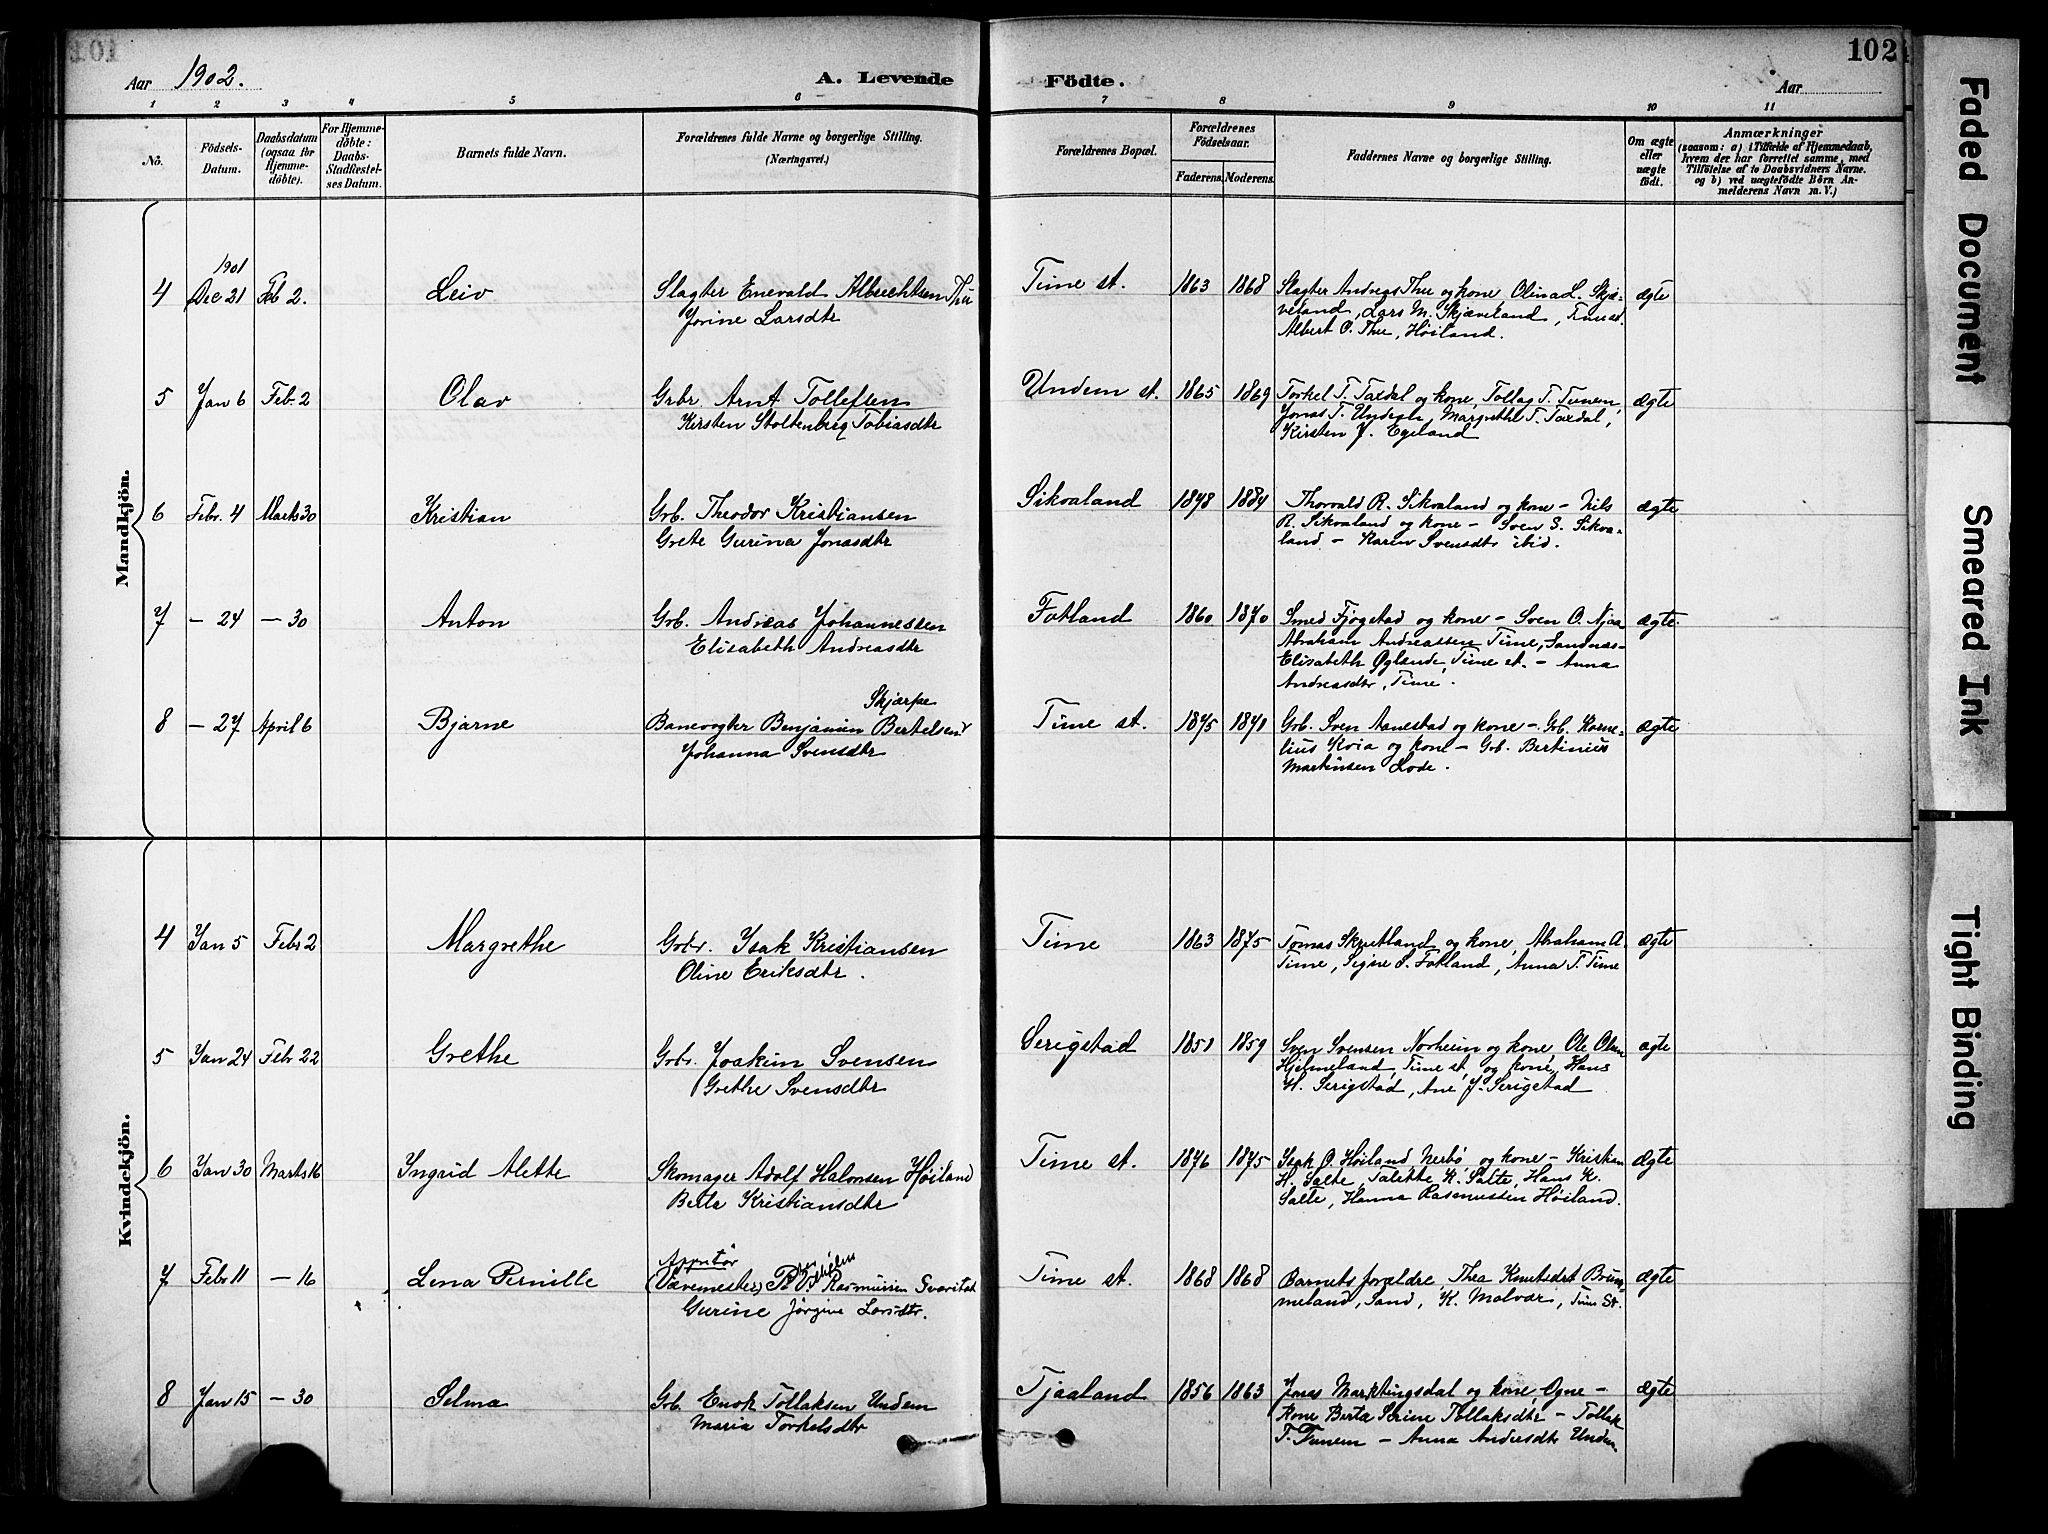 Aar 1902.
A. Levende
Födte.
Aar
102
1 2 3 4 5 6 7 8 9 10 11
No.
Födsels-
Datum.
Daabsdatum
(ogsaa for
Hjemme-
döbte).
For Hjemme-
döbte:
Daabs-
Stadfæstel-
ses Datum.
Barnets fulde Navn.
Forældrenes fulde Navne og borgerlige Stilling.
(Næringsvei.)
Forældrenes Bopæl.
Forældrenes
Födselsaar.
Faderens. Moderens.
Faddernes Navne og borgerlige Stilling.
Om ægte
eller
uægte
födt.
Anmærkninger
(saasom: a) i Tilfælde af Hjemmedaab,
hvem der har forrettet samme, med
Tilföielse af to Daabsvidners Navne.
og b) ved uægtefödte Börn An-
melderens Navn m. V.)
Mandkjön.
1901
4 Dec 21 Feb 2. Leiv Slagter Enevald Albrechtsen Thu Time st. 1863 1868 Slagter Andreas Thu og kone, Olina L. Skjæ- ægte
Jorine Larsdtr veland, Lars M. Skjæveland, Time st.
Albert O. Thu, Høiland.
5 Jan 6 Feb. 2 Olav Grbr Arnt Tollefsen Undem st. 1865 1869 Torkel T. Taxdal og kone, Tollag T. Tunem, ægte
Kirsten Stoltenberg Tobiasdtr Jonas T. Undem, Margrethe T. Taxdal,
Kirsten J. Egeland
6 Febr. 4 Marts 30 Kristian Grb. Theodor Kristiansen Sikvaland 1878 1884 Thorvald R. Sikvaland og kone – Nils ægte
Grete Gurina Jonasdtr R. Sikvaland og kone – Sven S. Sikva-
land – Karen Svensdtr ibid.
7 – 24 – 30 Anton Grb. Andreas Johannessen Fotland 1860 1870 Smed Fjogstad og kone – Sven O. Njaa ægte.
Elisabeth Andreasdtr Abraham Andreassen Time, Sandnæs –
Elisabeth Øglænde, Time st. – Anna
Andreasdtr, Time.
Skjærpe
8 – 27 April 6 Bjarne Banevogter Benjamin Bertelsen Time st. 1875 1871 Grb. Sven Aanestad og kone – Grb. Korne- ægte
Johanna Svensdtr lius Kvia og kone – Grb. Bertinius
Martinsen Lode.
Kvindekjön.
4 Jan 5 Febr 2 Margrethe Grbr. Isak Kristiansen Time 1863 1875 Tomas Skrutland og kone, Abraham A. ægte
Oline Eriksdtr. Time, Signe S. Fotland, Anna T. Time
5 Jan 24 Febr 22 Grethe Grbr. Joakim Svensen Serigstad 1851 1859 Sven Svensen Norheim og kone, Ole Olsen ægte
Grethe Svensdtr Hjelmeland, Time st, og kone, Hans
H. Serigstad, Ane J. Serigstad
6 Jan 30 Marts 16 Ingrid Alette Skomager Adolf Halvorsen Høiland Time st. 1876 1875 Isak O. Høiland Nerbø og kone – Kristian ægte
Berta Kristiansdtr H. Salte, Talette K. Salte, Hans K.
Salte, Hanna Rasmussen Høiland.
Appretør
7 Febr 11 – 16 Lena Pernille (Vævemester) Rasmussen Time st. 1868 1868 Barnets forældre, Thea Knutsdtr Brum- ægte
Gurine Jørgine Larsdtr. meland, Sand, K. Molvær, Time St.
8 Jan 15 – 30 Selma Gb. Enok Tollaksen Undem Tjaaland 1856 1863 Jonas Marktingsdal og kone, Ogne – ægte
Maria Torkelsdtr Kone Berta Serine Tollaksdtr – Tollak
T. Tunem – Anna Andersdtr Undem
Faded Document
Smeared Ink
Tight Binding